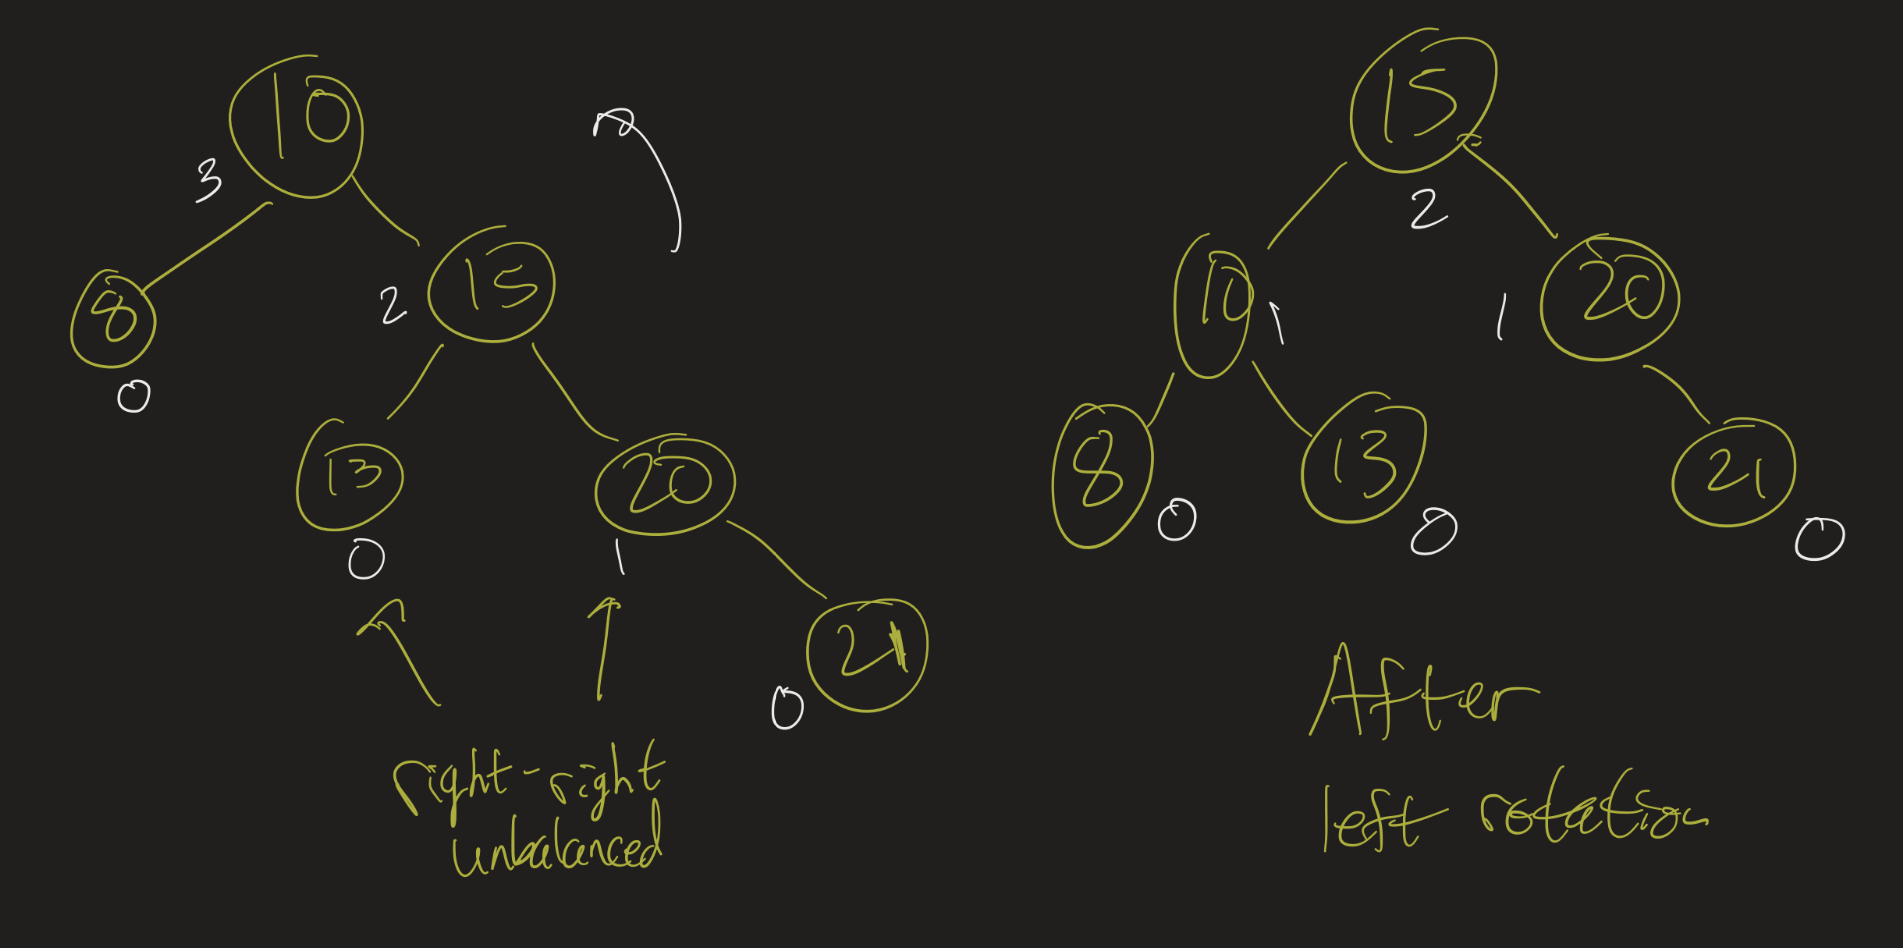 10
3
8
0
15
2
13
0
20
1
21
0
right-right
unbalanced
15
2
10
1
20
1
8
0
13
0
21
0
After
left rotation